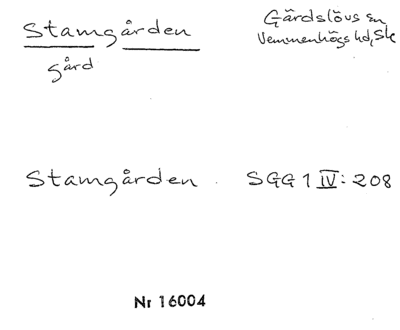 Stamgården
Gärdslövs sn
Vemmenhögs hd, Sk
gård
Stamgården SGG 1 IV: 208
Nr 16004